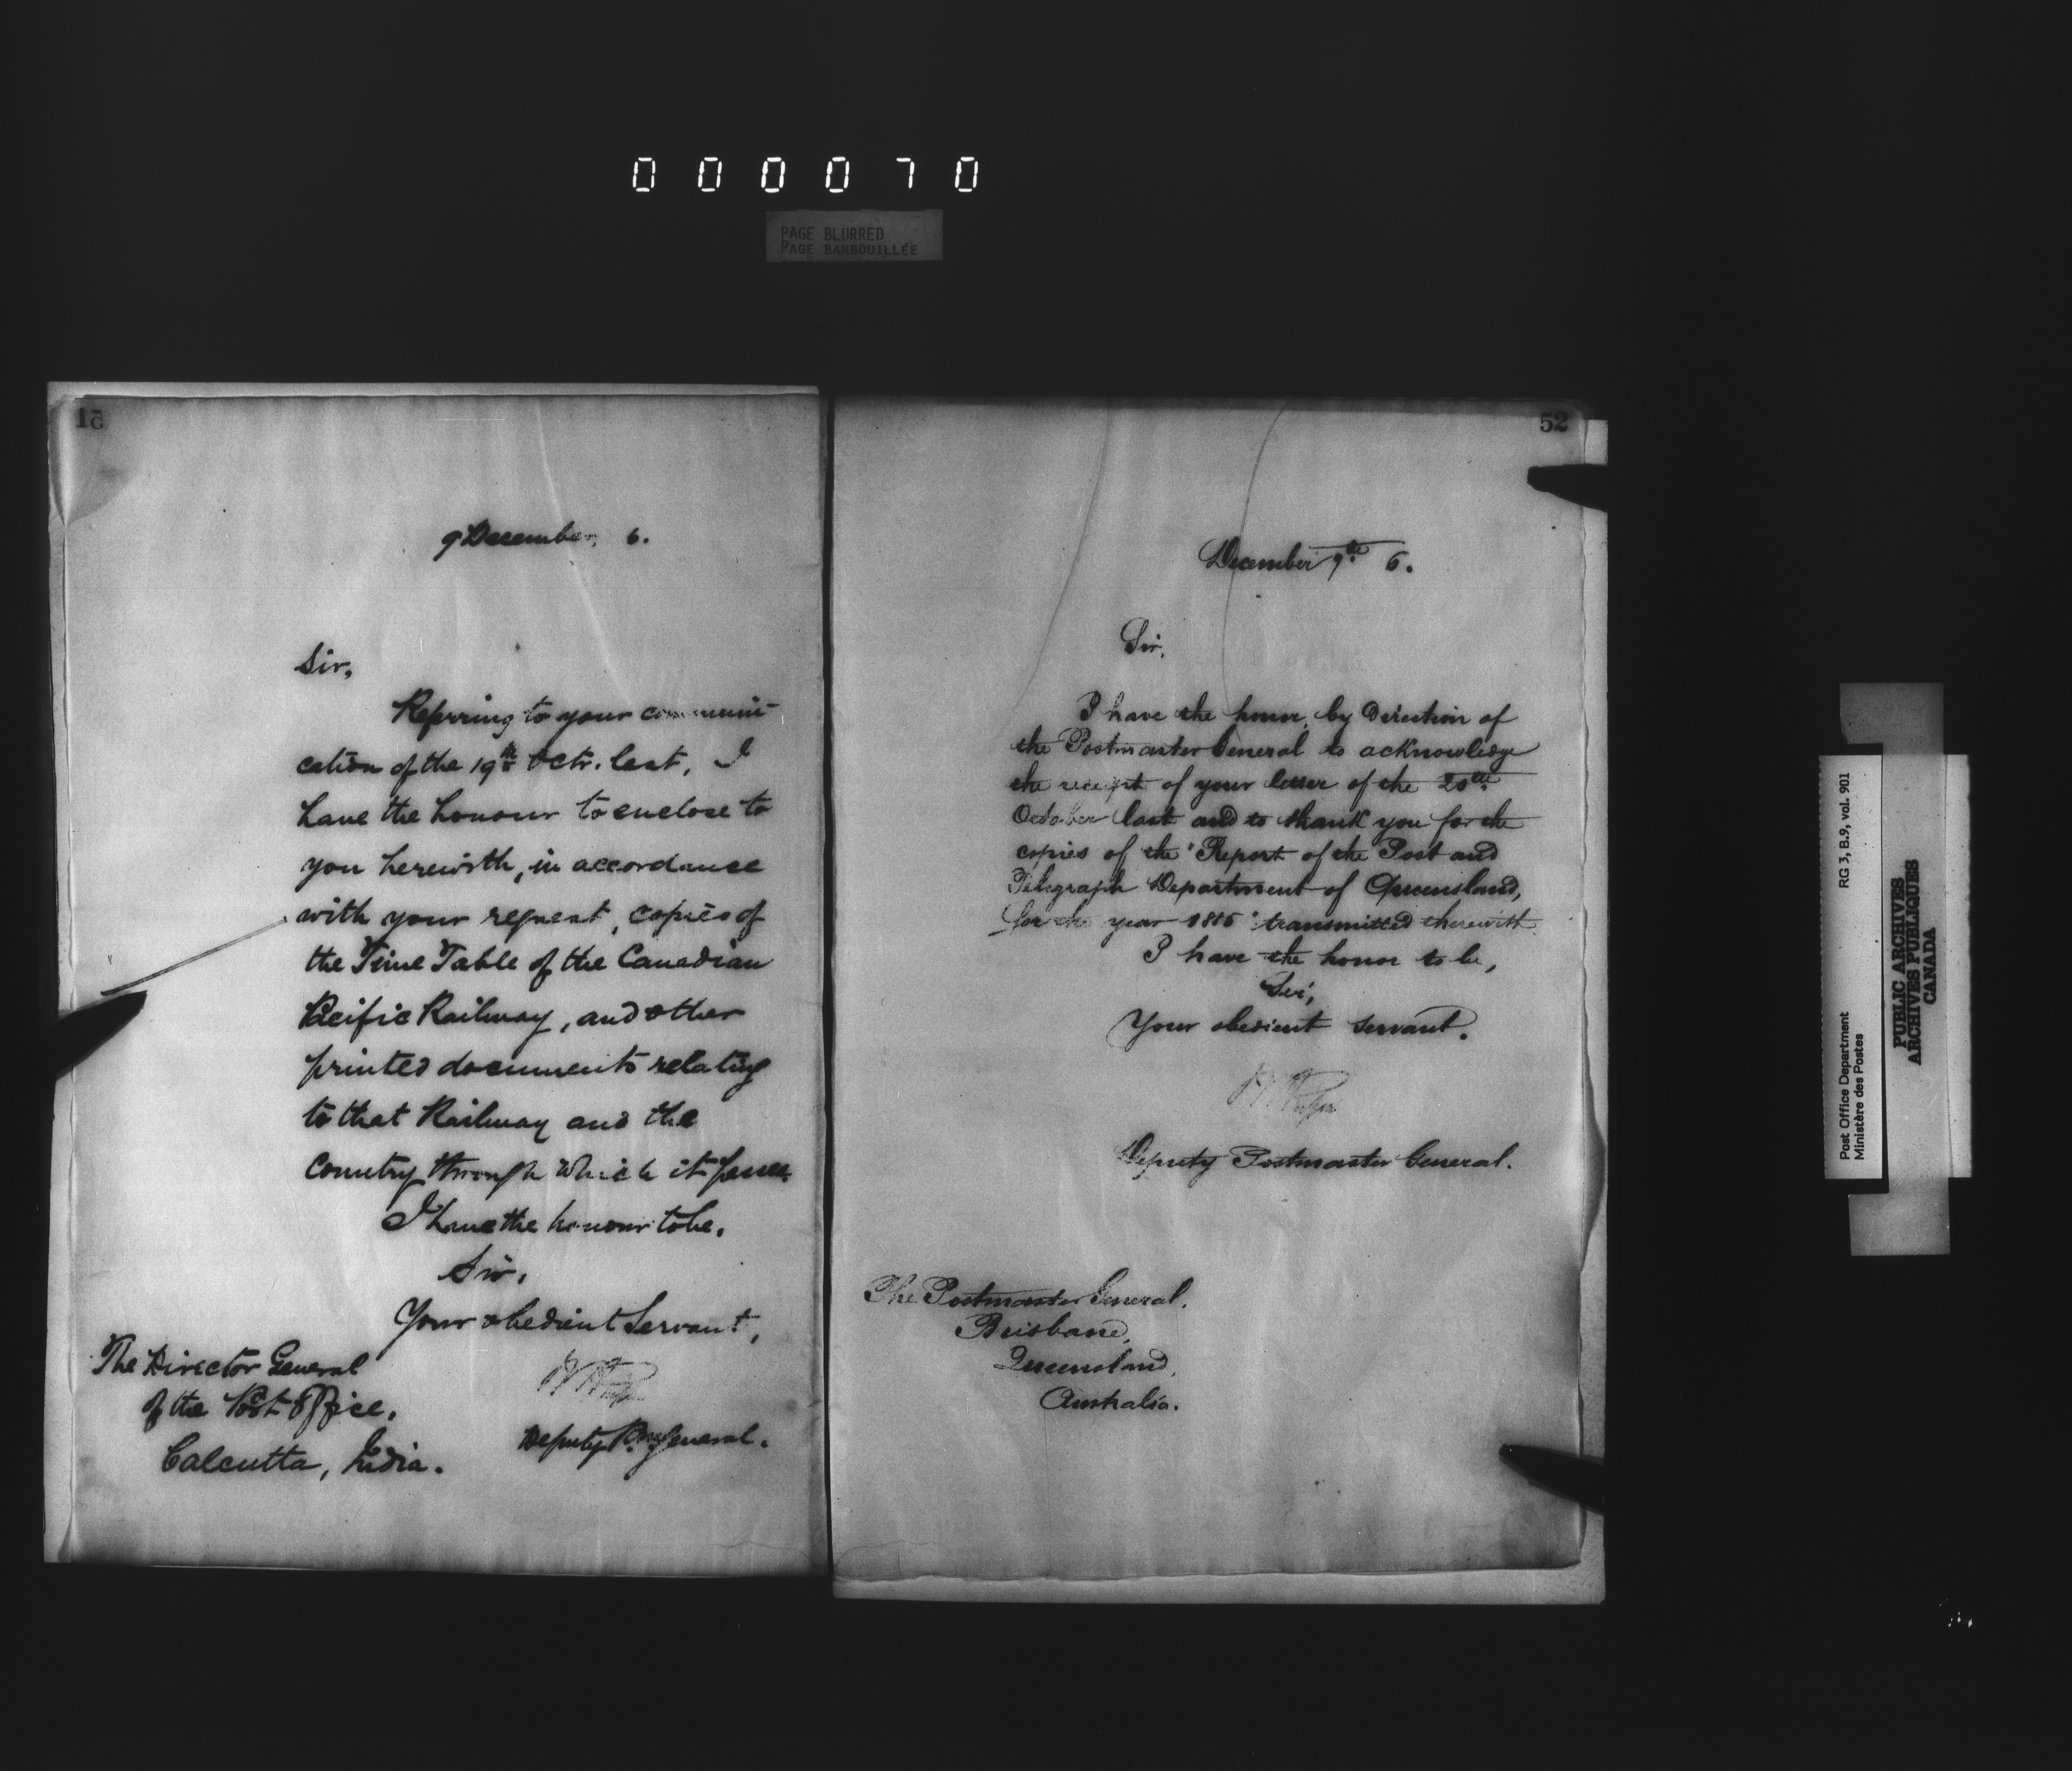 000070
PAGE BLURRED
PAGE BARBOUILLÉE
51
9 December, 6.
Sir,
Referring to your communi-
cation of the 19th Octr. last, I
have the honour to enclose to
you herewith, in accordance
with your request, copies of
the Time Table of the Canadian
Pacific Railway, and other
printed documents relating
to that Railway and the
Country through which it passes.
I have the honour to be,
Sir,
Your obedient Servant,
Deputy P.M. General.
The Director General
of the Post Office,
Calcutta, India.
52
December 9th 6.
Sir,
I have the honor, by direction of
the Postmaster General to acknowledge
the receipt of your letter of the 20th
October last and to thank you for the
copies of the "Report of the Post and
Telegraph Department of Queensland,
for the year 1885" transmitted therewith.
I have the honor to be,
Sir,
Your obedient servant.
Deputy Postmaster General.
The Postmaster General,
Brisbane,
Queensland,
Australia.
Post Office Department
Ministère des Postes
RG 3, B.9, vol. 901
PUBLIC ARCHIVES
ARCHIVES PUBLIQUES
CANADA